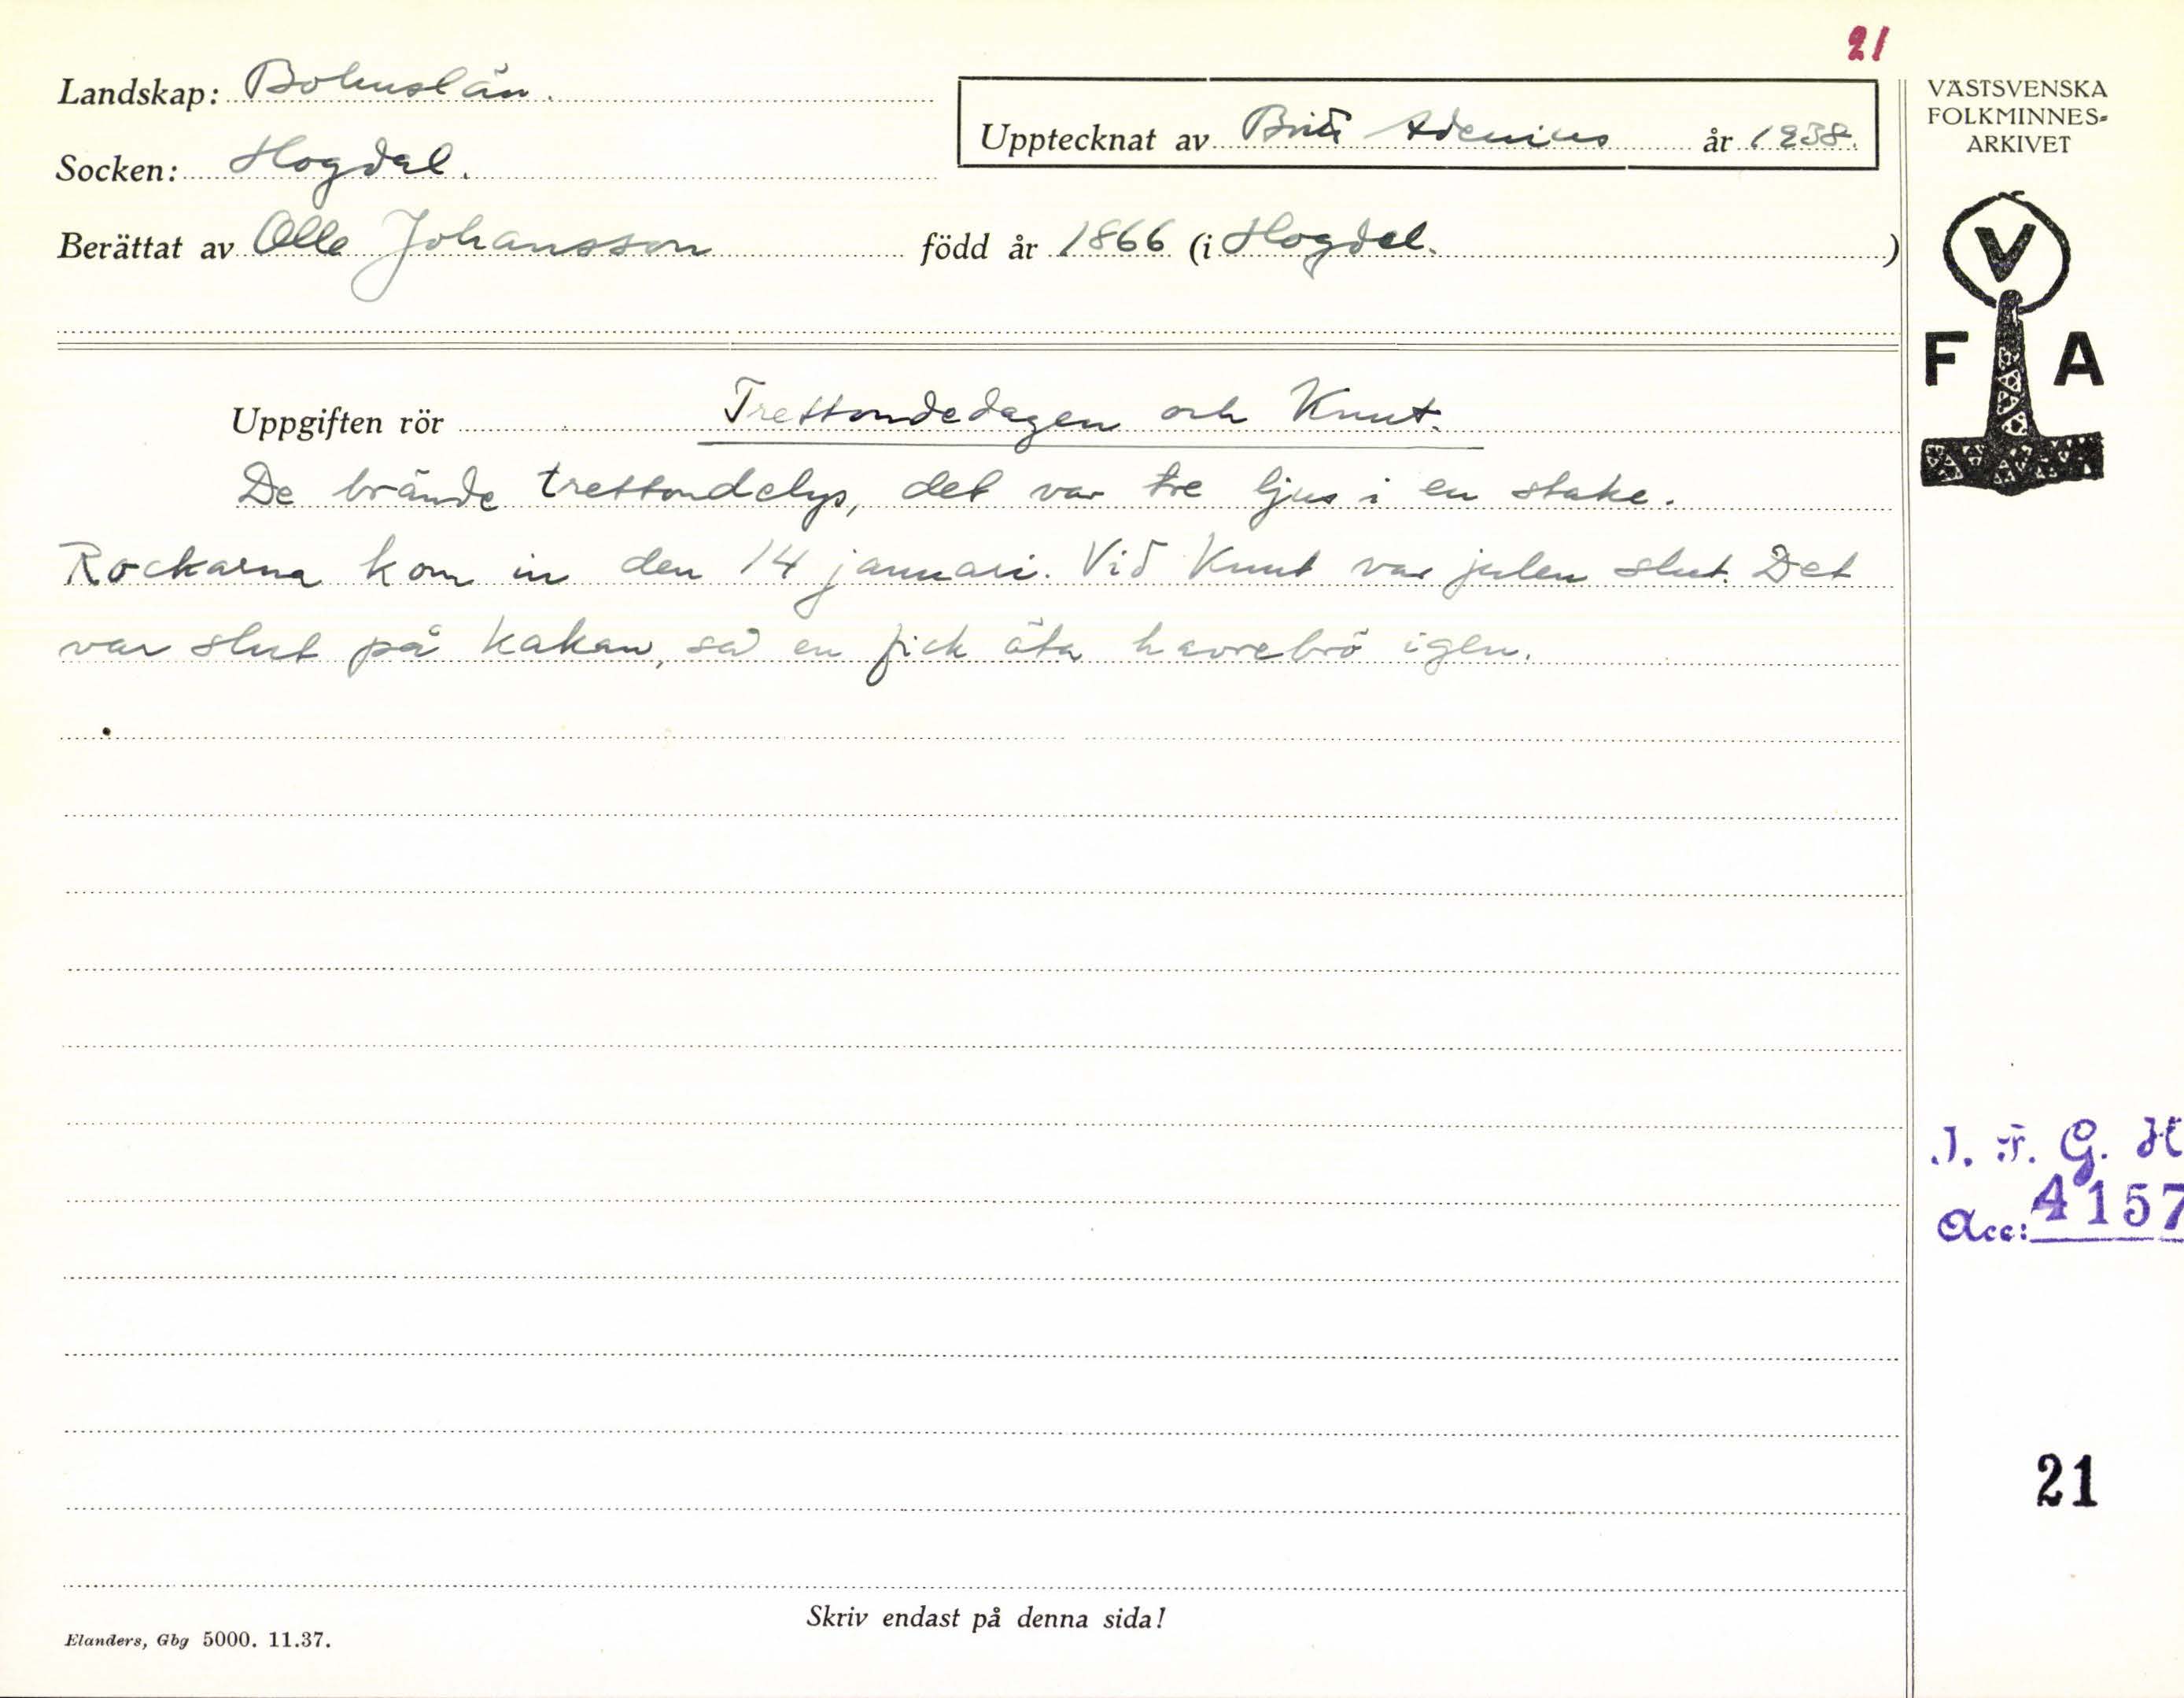 21
Landskap: Bohuslän.
Upptecknat av Britt Adenius år 1938.
Socken: Hogdal.
Berättat av Olle Johansson född år 1866 (i Hogdal.)
VÄSTSVENSKA
FOLKMINNES-
ARKIVET
V
F A
Uppgiften rör Trettondedagen och Knut.
De brände trettondelys, det var tre ljus i en stake.
Rockarna kom in den 14 januari. Vid Knut var julen slut. Det
var slut på kakan, så en fick äta havrebrö igen.
I. F. G. H
Acc: 4157
21
Skriv endast på denna sida!
Elanders, Gbg 5000. 11.37.